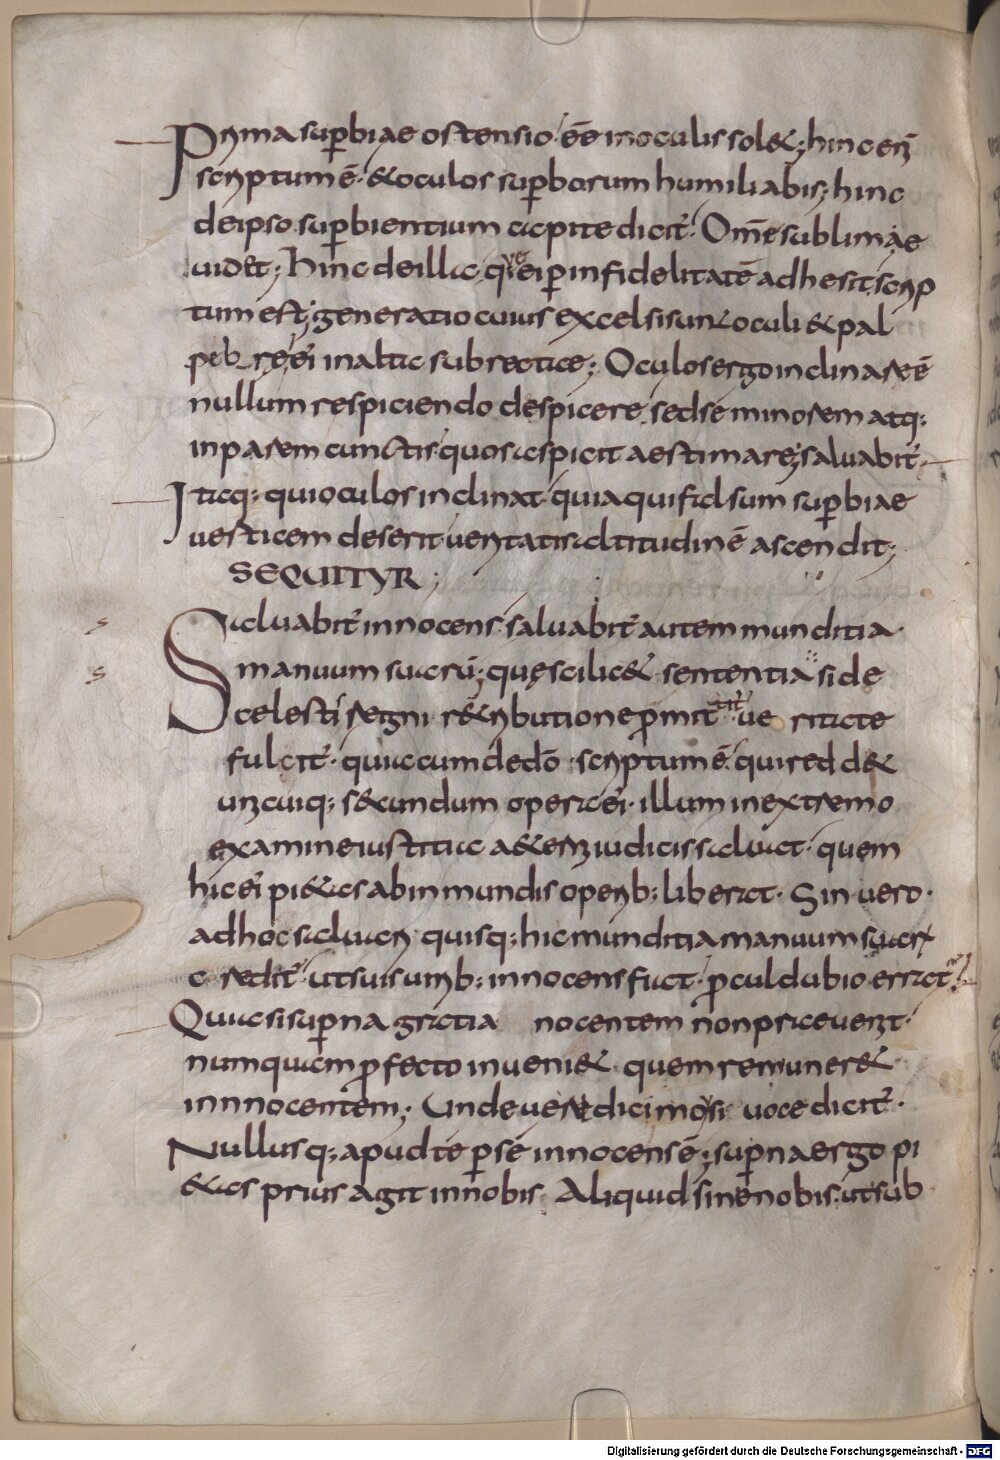 Prima suꝑbiae ostensio·ēē in oculis sol&;hinc eni̅
scriptum ē·&oculos suꝑborum humiliabis;hinc
de ipso suꝑbientium capite dicit᷑·Om̅e sublimae
uidet;hinc de illa quae ei ꝑ infidelitatē adhesit scrip
tum est;generatio cuius excelsi sunt oculi & pal
pebre ei in alta subrectae;Oculos ergo inclinare ē
nullum respiciendo despicere sed se minorem atq;
inparem cunctis quos aspicit aestimare;saluabit᷑
Itaq; qui oculos inclinat·quia qui falsum suꝑbiae
uerticem deserit ueritatis altitudinē ascendit;
SEQUITYR;
Saluabit᷑ innocens·saluabit᷑ autem munditia·
manuum suarū;quę scilic& sententia si de
celesti regni r&ributione ꝓmit
fulcit᷑·quia cum de dō·scriptum ē·qui red d&
unicuiq; secundum opera ei·illum in extremo
examine iustitia aeterni iudicis saluat·quem
hic ei pi&as ab inmundis operib; liberat·Sin uero·
ad hoc saluari quisq; hic munditia manuum suarū
c redit᷑·ut suis uirib; innocens fiat·ꝓculdubio errat᷑
Quia si suꝑna gratia nocentem non praeuenit·
numquam ꝓfecto inueni& quem remuner&
innnocentem;Unde ueredici mosi uoce dicit᷑·
Nullusq; apud te ꝑ se innocens ē;suꝑna ergo pi
&as prius agit in nobis·Aliquid sine nobis·ut sub
Digitalisierung gefördert durch die Deutsche Forschungsgemeinschaft - DFG